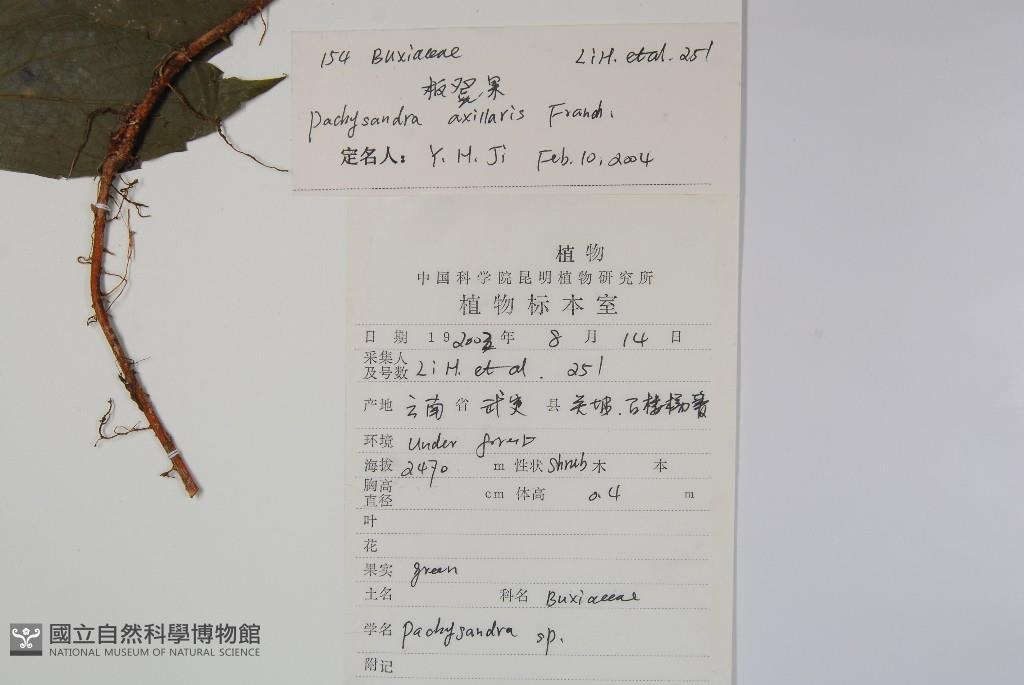 154 Buxiaceae Li H. et al. 251
板凳果
Pachysandra axillaris Franch.
定名人: Y. H. Ji Feb. 10, 2004
植物
中国科学院昆明植物研究所
植物标本室
日期 19 200 年 8 月 14 日
采集人及号数 Li H. et al. 251
产地 云南 省 武定 县
环境 Under forest
海拔 2470 m 性状 Shrub 木 本
胸高直径 cm 体高 0.4 m
叶
花
果实 green
土名 科名 Buxiaceae
学名 Pachysandra sp.
附记
國立自然科學博物館
NATIONAL MUSEUM OF NATURAL SCIENCE